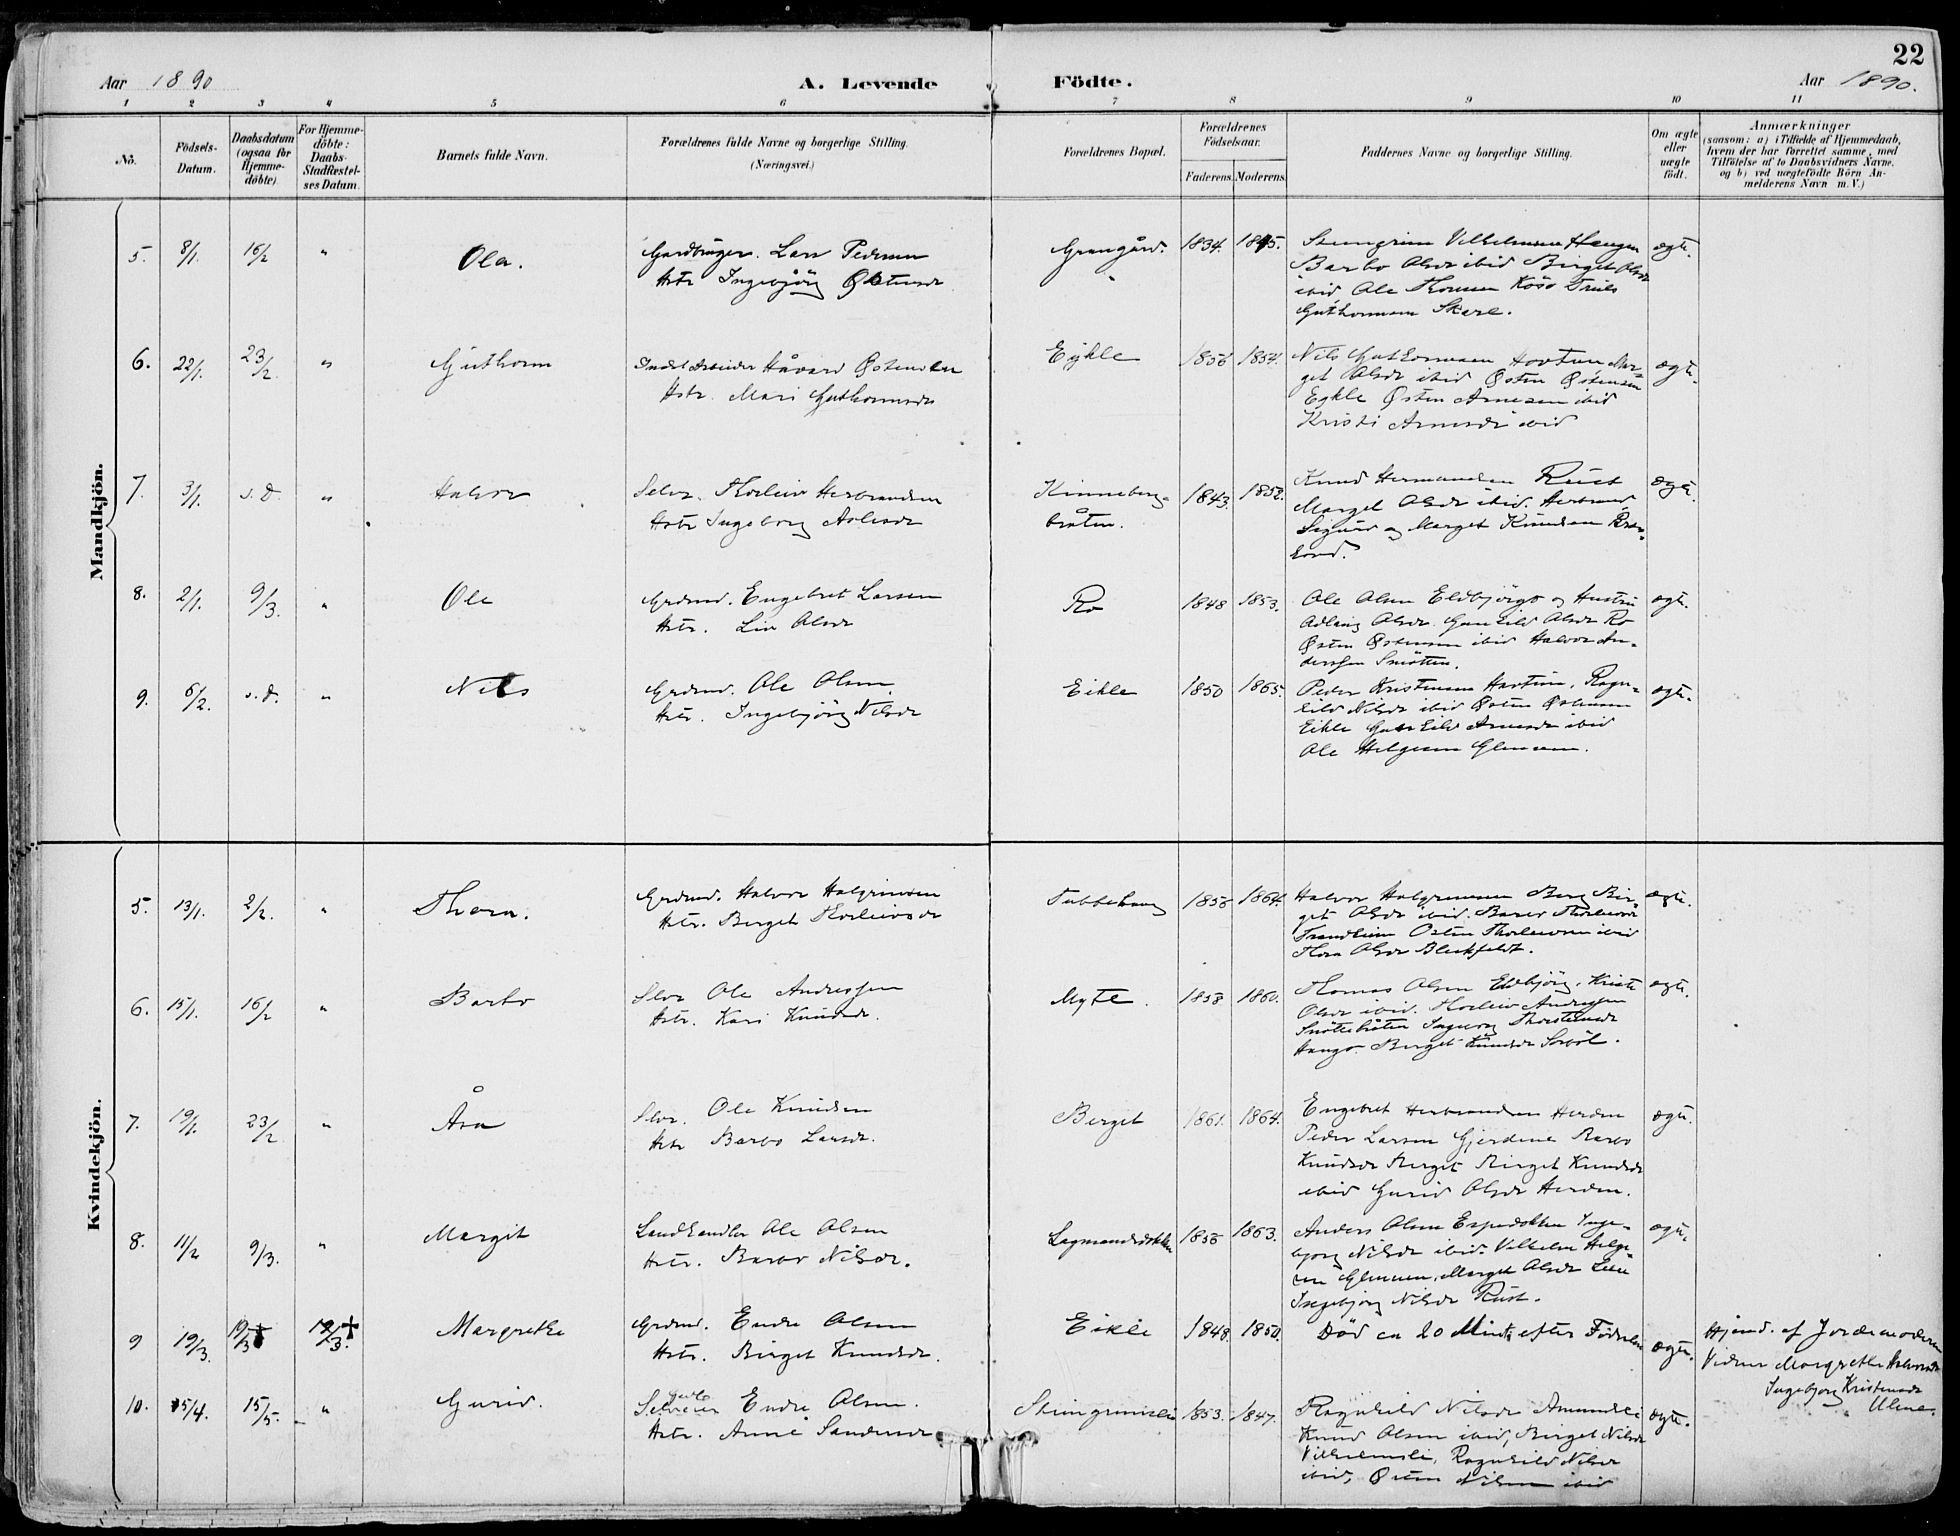 22
Aar 1890 A. Levende Födte. Aar 1890.
1 2 3 4 5 6 7 8 9 10 11
No.
Födsels-
Datum.
Daabsdatum
(ogsaa för
Hjemme-
döbte)
For Hjemme-
döbte:
Daabs-
Stadfestel-
ses Datum.
Barnets fulde Navn.
Forældrenes fulde Navne og borgerlige Stilling.
(Næringsvei.)
Forældrenes Bopæl.
Forældrenes
Födselsaar.
Faderens. Moderens.
Faddernes Navne og borgerlige Stilling.
Om ægte
eller
uægte
födt.
Anmærkninger
(saasom: a) i Tilfælde af Hjemmedaab,
hvem der har forrettet samme, med
Tilföielse af to Daabsvidners Navne.
og b) ved uægtefödte Börn An-
melderens Navn m.V.)
Mandkjön.
5. 8/1. 16/2 " Ola. Gardbruger. Lars Pedersen
Hstr Ingebjörg Østensdr
Grangård. 1834. 1845.
Steingrim Vilhelmsen Haugen
Barbo Olsdr ibid Birget Olsdr
ibid Ole Thomsen Köso Truls
Guthormsen Skare.
ægte.
6. 22/1. 23/2 " Guthorm Håvard Østensen
Hstr. Mari Guthormsdr
Eykle 1856 1854.
Nils Guthormsen Hovtun, Mar-
get Olsdr ibid Østen Østensen
Eykle Østen Arnesen ibid
Kristi Arnesdr ibid
ægte.
7. 3/1. s.d. " Halvor Selve. Thorleiv Herbrandsen
Hstr Ingeborg Aslesdr
Kinneberg-
bråten. 1843. 1852.
Knud Hermandsen Rust
Marget Olsdr ibid. Herbrand
Sigurd og Marget Knudsen
ægte.
8. 2/1. 9/3. " Ole Grdmd. Engebret Larsen
Hstr. Liv Olsdr
Ro 1848 1853.
Ole Olsen Eldbjörgo og Hustru
Adlaug Olsdr. Gunhild Olsdr Ro
Østen Østensen ibid Halvor An-
derssen Snötten.
ægte.
9. 6/2. s.d. " Nils Grdmd. Ole Olsen
Hstr. Ingebjörg Nilsdr
Eikle 1850 1865.
Peder Kristensen Hovtun, Ragn-
hild Nilsdr ibid Østen Østensen
Eikle Gunhild Arnesdr ibid
Ole Helgesen Glensen.
ægte.
Kvindekjön.
5. 13/1. 2/2. " Thora. Grdmd. Halvor Halgrimsen
Hstr. Birget Thorleivsdr
Tubbehaug 1856 1864.
Halvor Halgrimsen Berg Bir-
get Olsdr ibid. Barbo Thorleivsdr
Trondheim Østen Thorleivsen ibid
Thora Olsdr Blekfeldt.
ægte.
6. 15/1. 16/2 " Barbo Slvr Ole Andressen
Hstr. Kari Knudsdr.
Myte. 1858 1860.
Thomas Olsen Eldbjörg. Kristi
Olsdr ibid. Thorleiv Andressen
Snöttebråten Ingebjörg Thorsteinsdr
Haugo Birget Knudsdr Sörböl.
ægte.
7. 19/1. 23/2 " Åsa Slvr. Ole Knudsen
Hstr Barbo Larsdr.
Berget 1861. 1864.
Engebret Herbrandsen Herden
Peder Larsen Gjerdene Barbo
Knudsdr Berget Birget Knudsdr
ibid Gurid Olsdr Herden.
ægte.
8. 11/2 9/3. " Margit Landhandler Ole Olsen
Hstr. Barbo Nilsdr.
Lagmandsdokken 1856 1863.
Anders Olsen Espedokken Inge-
björg Nilsdr ibid. Vilhelm Helge-
sen Glensen, Marget Olsdr
Ingebjörg Nilsdr Rust.
ægte.
9 19/3. 19/3 † 19/3. † Margrethe Grdmd. Endre Olsen
Hstr. Birget Knudsdr.
Eikle 1848. 1850.
Död ca 20 Mint. efter Födselen
ægte.
Hjemd. af Jordemoderen
Vidner Margrethe Halvorsdr
Ingebjörg Kristensdr
Ulene.
10. 15/4. 15/5. " Gurid. Selveier Endre Olsen.
Hstr. Anne Sandersdr
Steingrimsli 1853. 1847.
Ragnhild Nilsdr Amundsli
Knud Olsen ibid, Birget Nilsdr
Vilhelmsli, Ragnhild Nilsdr
ibid, Nilsen ibid
ægte.